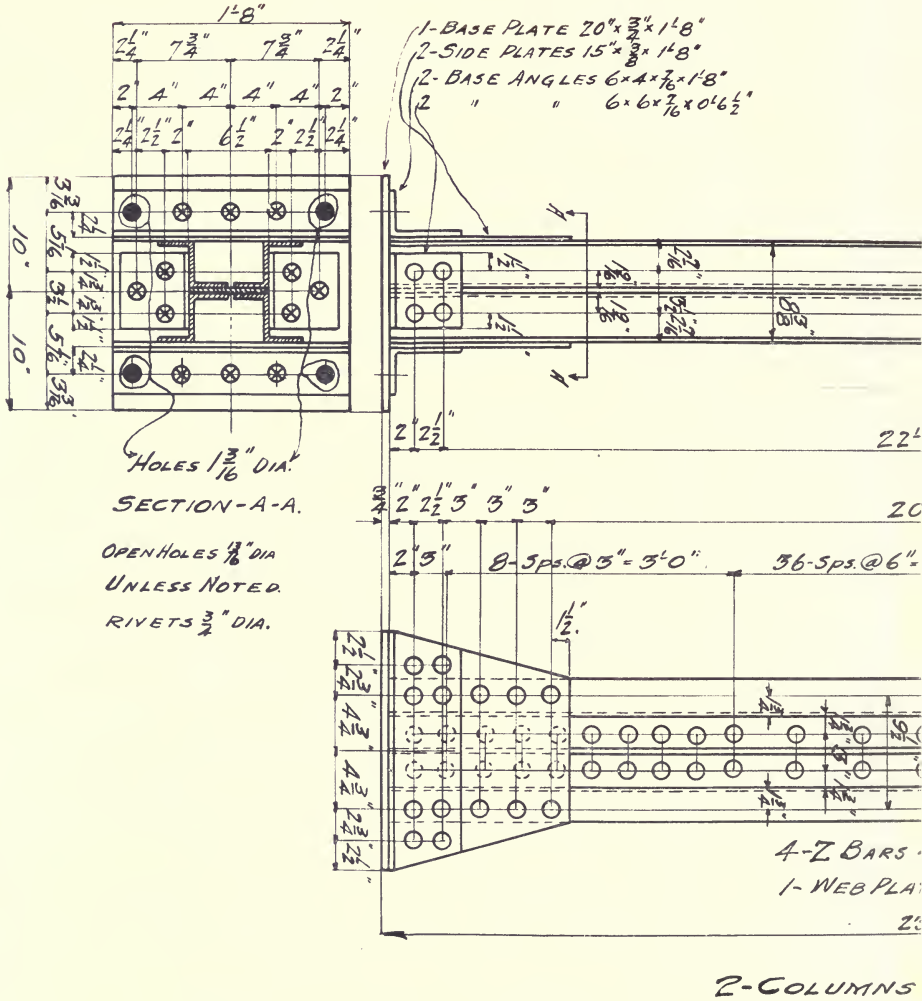 1'-8"
2 1/4" 7 3/4" 7 3/4" 2 1/4"
2" 4" 4" 4" 4" 2"
2 1/4" 2 1/2" 2" 6 1/2" 2" 2 1/2" 2 1/4"
1-BASE PLATE 20"x 3/4"x 1'8"
2-SIDE PLATES 15"x 3/8"x 1'8"
2-BASE ANGLES 6x4x 7/16 x1'8"
2 " " 6x6x 7/16 x0'6 1/2"
10"
10"
3 3/16
5 1/16
3 1/2
5 1/16"
3 3/16"
2 1/4
1 1/2
1 3/4
1 3/4
1 1/2
2 1/4"
A
A
1 1/2"
1 1/2"
1 9/16
1 9/16
2 7/16"
3 1/2
2 7/16"
8 3/8"
2" 2 1/2" 22'
HOLES 1 3/16" DIA.
SECTION-A-A.
OPEN HOLES 13/16" DIA
UNLESS NOTED.
RIVETS 3/4" DIA.
3/4 2" 2 1/2" 3" 3" 3" 20
2" 3" 8-Sps.@3"= 3'0" 36-Sps.@6"=
1 1/2".
2 1/2"
2 3/4"
4 3/4"
4 3/4"
2 3/4"
2 1/2"
1 3/4"
1 3/4"
3"
1 3/4"
1 3/4"
9 1/2"
4-Z BARS
1-WEB PLA
2-COLUMNS